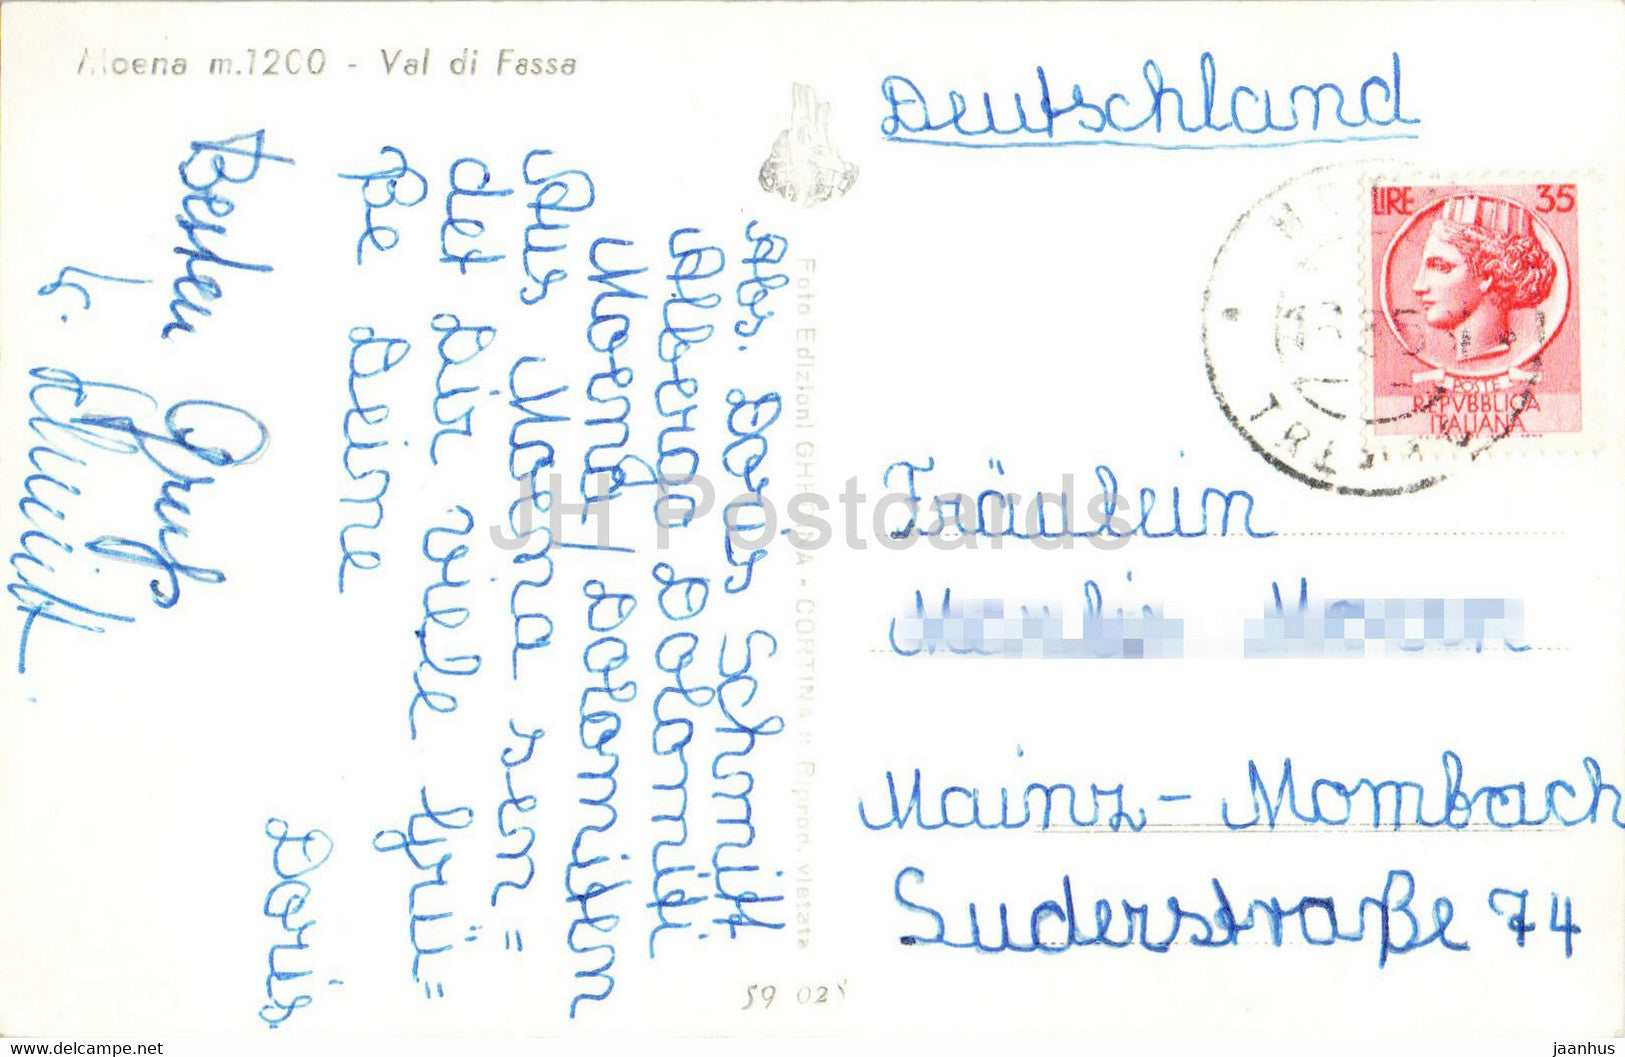 Moena m.1200 - Val di Fassa
Abs. Doris Schmitt
Albergo Dolomiti
Moena / Dolomiten
Aus Moena sen=
det Dir viele Grü=
ße Deine
Doris
Besten Gruß
Schmitt
Foto Edizioni GHEDINA - CORTINA - Riprod. vietata
59 025
Deutschland
LIRE 35
POSTE
REPVBBLICA
ITALIANA
Fräulein
Mainz-Mombach
Suderstraße 74
JH Postcards
www.delcampe.net
jaanhus